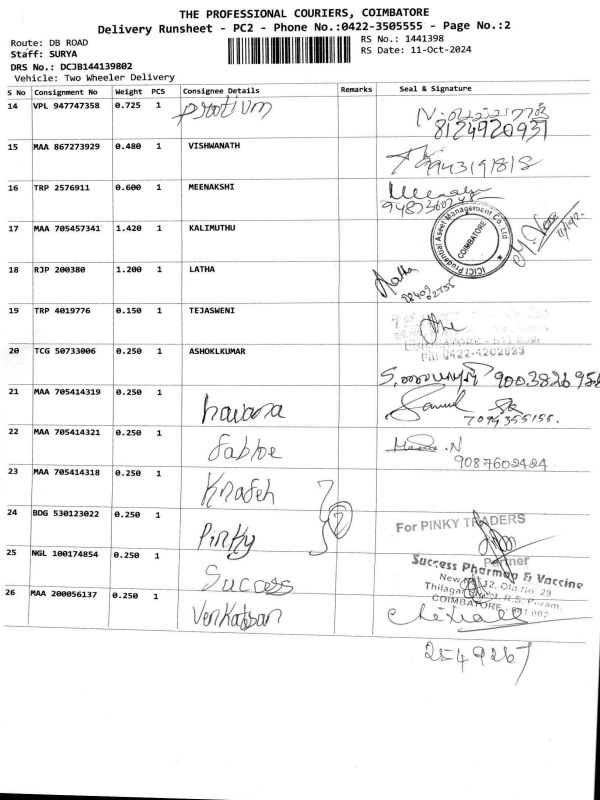 THE PROFESSIONAL COURIERS, COIMBATORE
Delivery Runsheet - PC2 - Phone No.:0422-3505555 - Page No.:2
Route: DB ROAD
Staff: SURYA
DRS No.: DCJB144139802
Vehicle: Two Wheeler Delivery
RS No.: 1441398
RS Date: 11-Oct-2024
S No Consignment No Weight PCS Consignee Details Remarks Seal & Signature
14 VPL 947747358 0.725 1
8124920931
15 MAA 867273929 0.480 1 VISHWANATH
9943191818
16 TRP 2576911 0.600 1 MEENAKSHI
17 MAA 705457341 1.420 1 KALIMUTHU
ICICI Prudential Asset Management Co. Ltd
COIMBATORE
18 RJP 200380 1.200 1 LATHA
Latha
19 TRP 4019776 0.150 1 TEJASWENI
20 TCG 50733006 0.250 1 ASHOKLKUMAR
21 MAA 705414319 0.250 1 havana
7094355155.
22 MAA 705414321 0.250 1
9087602424
23 MAA 705414318 0.250 1 Knafeh
24 BDG 530123022 0.250 1 Pinkty
For PINKY TRADERS
Partner
25 NGL 100174854 0.250 1 Success
Success Pharmay & Vaccine
26 MAA 200056137 0.250 1
2549267